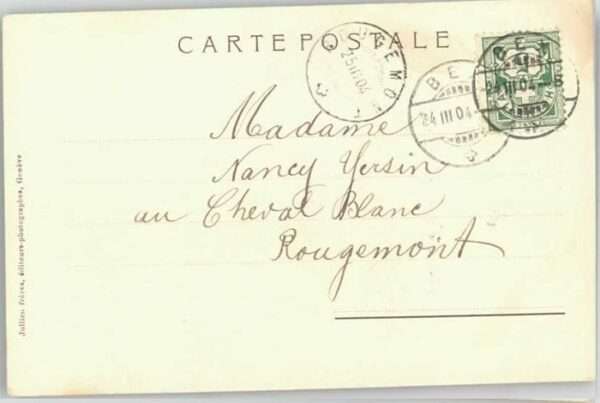 CARTE POSTALE
ROUGEMONT
25 III 04
BEX
24 III 04
BEX
24 III 04
Madame
Nancy Yersin
au Cheval Blanc
Rougemont
Jullien frères, éditeurs-photographes, Genève